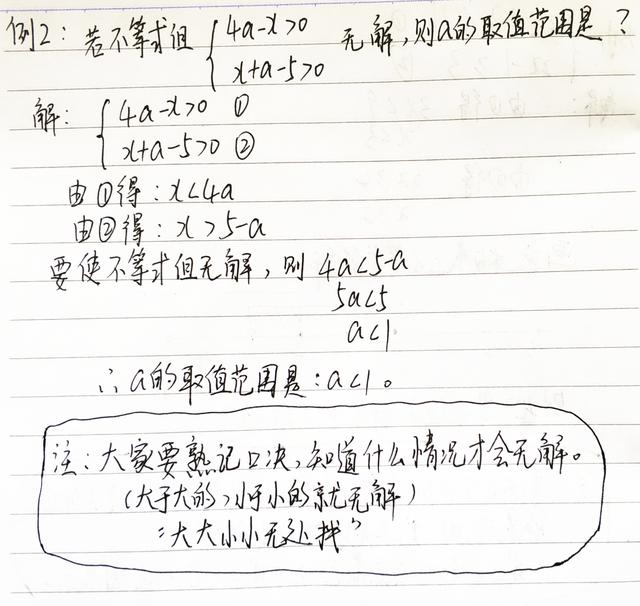 例2: 若不等式组 { 4a-x>0 无解,则a的取值范围是?
x+a-5>0
解: { 4a-x>0 ①
x+a-5>0 ②
由①得: x<4a
由②得: x>5-a
要使不等式组无解, 则 4a<5-a
5a<5
a<1
∴ a的取值范围是: a<1。
注: 大家要熟记口决, 知道什么情况才会无解。
(大于大的,小于小的就无解)
“大大小小无处找”